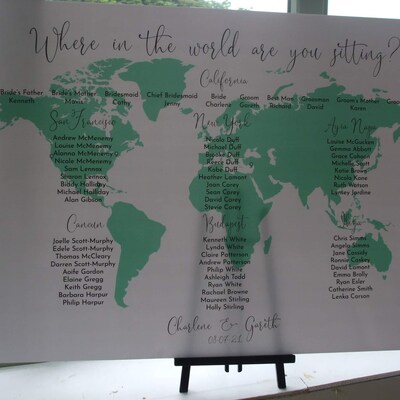 Where in the world are you sitting?
California
Bride's Father Bride's Mother Bridesmaid Chief Bridesmaid Bride Groom Best Man Groomsman Groom's Mother Groom's
Kenneth Maria Cathy Jenny Charlene Gareth Richard David Karen
San Francisco New York Ayia Napa
Andrew McMenemy
Louise McMenemy
Alanna McMenemy
Nicole McMenemy
Sam Lennox
Sharon Lennox
Biddy Halliday
Michael Halliday
Alan Gibson
Nicola Duff
Michael Duff
Brooke Duff
Reece Duff
Kobe Duff
Heather Lamont
Joan Carey
Sean Carey
David Carey
Stevie Carey
Louise McGuckan
Gemma Abbott
Grace Cahoon
Michelle Scott
Katie Brown
Nicola Kane
Ruth Watson
Lyntey Jardine
Cancun Budapest
Joelle Scott-Murphy
Edele Scott-Murphy
Thomas McCleary
Darren Scott-Murphy
Aoife Gordon
Elaine Gregg
Keith Gregg
Barbara Harpur
Philip Harpur
Kenneth White
Lynda White
Claire Patterson
Andrew Patterson
Philip White
Ashleigh Todd
Ryan White
Rachael Browne
Maureen Stirling
Holly Stirling
Chris Simms
Angela Simms
Jane Cassidy
Ronnie Conkey
David Lamont
Emma Brolly
Ryan Esler
Catherine Smith
Lenka Carson
Charlene & Gareth
03.07.21